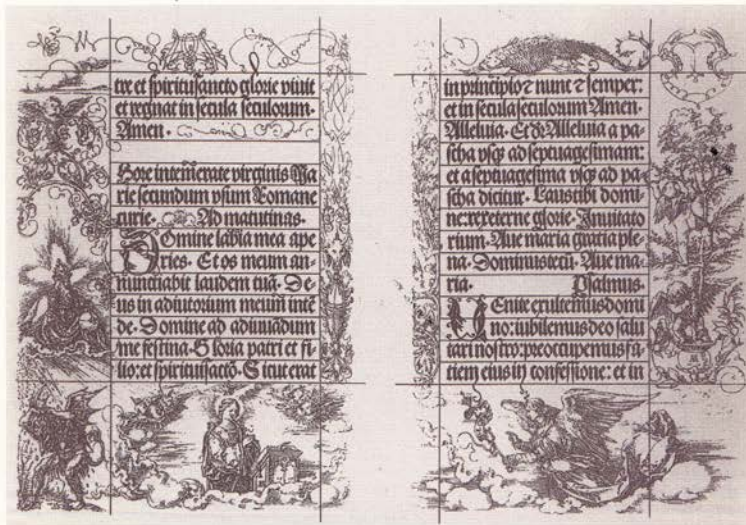 tre et spiritusancto glorie viuit
et regnat in secula seculorum.
Amen.
Hore intemerate virginis Ma
rie secundum vsum Romane
curie. Ad matutinas.
Domine labia mea ape
ries. Et os meum an-
nunciabit laudem tuā. De-
us in adiutorium meum intē
de. Domine ad adiuuādum
me festina. Gloria patri et fi-
lio: et spirituisactō. Sicut erat
in principio ⁊ nunc ⁊ semper:
et in secula seculorum Amen.
Alleluia. Et dr̄ Alleluia a pa-
scha vsq; ad septuagesimam:
et a septuagesima vsq; ad pa
scha dicitur. Laus tibi domi-
ne: rex eterne glorie. Inuitato
rium. Aue maria gracia ple-
na. Dominus tecū. Aue ma-
ria. Psalmus.
Uenite exultemus domi
no: iubilemus deo salu
tari nostro: preoccupemus fa
ciem eius in confessione: et in